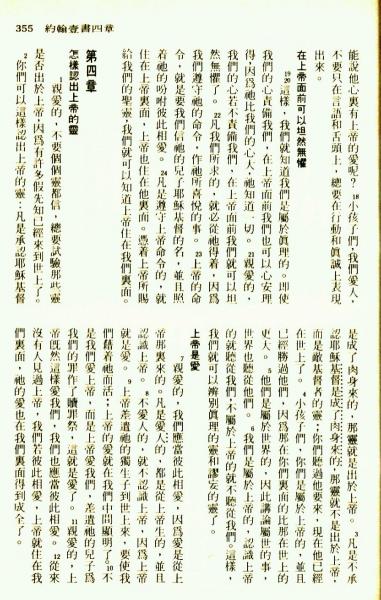 355 約翰壹書四章
能說他心裏有上帝的愛呢?18小孩子們,我們愛人,
不要只在言語和舌頭上,總要在行動和眞誠上表現
出來。
在上帝面前可以坦然無懼
19 20這樣,我們就知道我們是屬於眞理的。卽使
我們的心責備我們,在上帝面前我們也可以心安理
得,因爲祂比我們的心大,祂知道一切。21親愛的,
我們的心若不責備我們,在上帝面前我們就可以坦
然無懼了。22凡我們所求的,就必從祂得着,因爲
我們遵守祂的命令,作祂所喜悅的事。23上帝的命
令,就是要我們信祂的兒子耶穌基督的名,並且照
着祂的吩咐彼此相愛。24凡是遵守上帝命令的,就
住在上帝裏面,上帝也住在他裏面。憑着上帝所賜
給我們的聖靈,我們就可以知道上帝住在我們裏面。
第四章
怎樣認出上帝的靈
1親愛的,不要個個靈都信,總要試驗那些靈
是否出於上帝,因爲有許多假先知已經來到世上了。
2你們可以這樣認出上帝的靈:凡是承認耶穌基督
是成了肉身來的,那靈就是出於上帝;3凡是不承
認耶穌基督是成了肉身來的,那靈就不是出於上帝,
而是敵基督者的靈;你們聽過他要來,現在他已經
在世上了。4小孩子們,你們是屬於上帝的,並且
已經勝過他們,因爲那在你們裏面的比那在世上的
更大。5他們是屬於世界的,因此講論屬世的事,
世界也聽從他們。6我們是屬於上帝的,認識上帝
的就聽從我們;不屬於上帝的就不聽從我們。這樣,
我們就可以辨別眞理的靈和謬妄的靈了。
上帝是愛
7親愛的,我們應當彼此相愛,因爲愛是從上
帝那裏來的。凡是愛人的,都是從上帝生的,並且
認識上帝。8不愛人的,就不認識上帝,因爲上帝
就是愛。9上帝差遣祂的獨生子到世上來,要使我
們藉着祂而活;上帝的愛就在我們中間顯明了。10不
是我們愛上帝,而是上帝愛我們,差遣祂的兒子爲
我們的罪作了贖罪祭,這就是愛了。11親愛的,上
帝旣然這樣愛我們,我們也應當彼此相愛。12從來
沒有人見過上帝,我們若彼此相愛,上帝就住在我
們裏面,祂的愛也在我們裏面得到成全了。